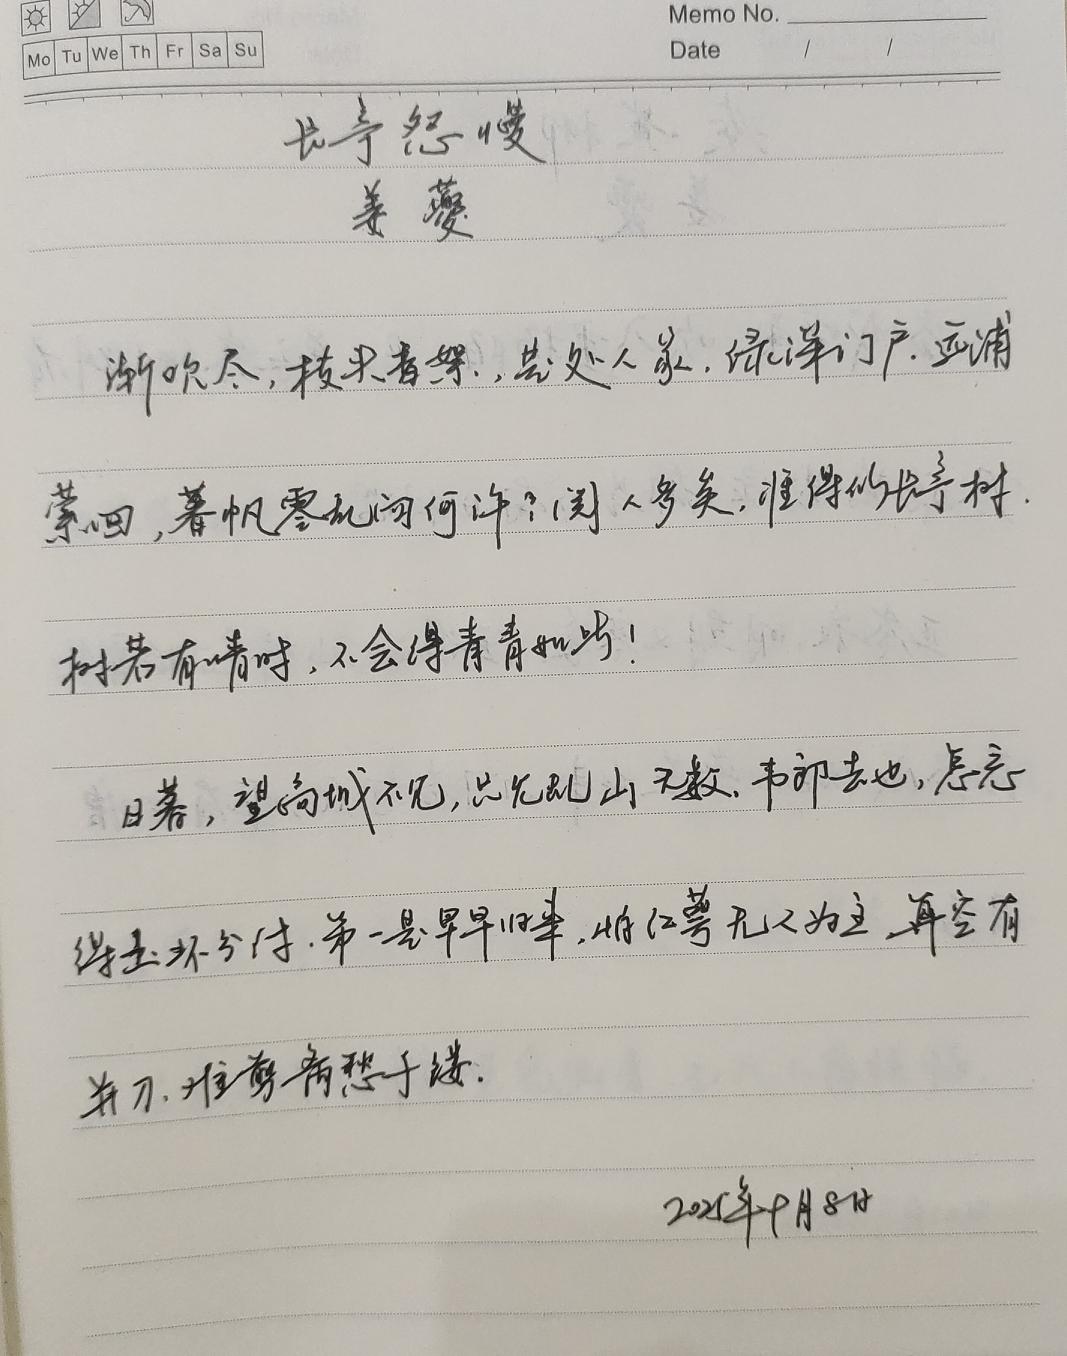 Mo Tu We Th Fr Sa Su
Memo No.
Date / /
长亭怨慢
姜夔
渐吹尽,枝头香絮,是处人家,绿深门户.远浦
萦回,暮帆零乱向何许?阅人多矣,谁得似长亭树.
树若有情时,不会得青青如此!
日暮,望高城不见,只见乱山无数.韦郎去也,怎忘
得玉环分付.第一是早早归来,怕红萼无人为主.算空有
并刀.难剪离愁千缕.
2025年9月8日